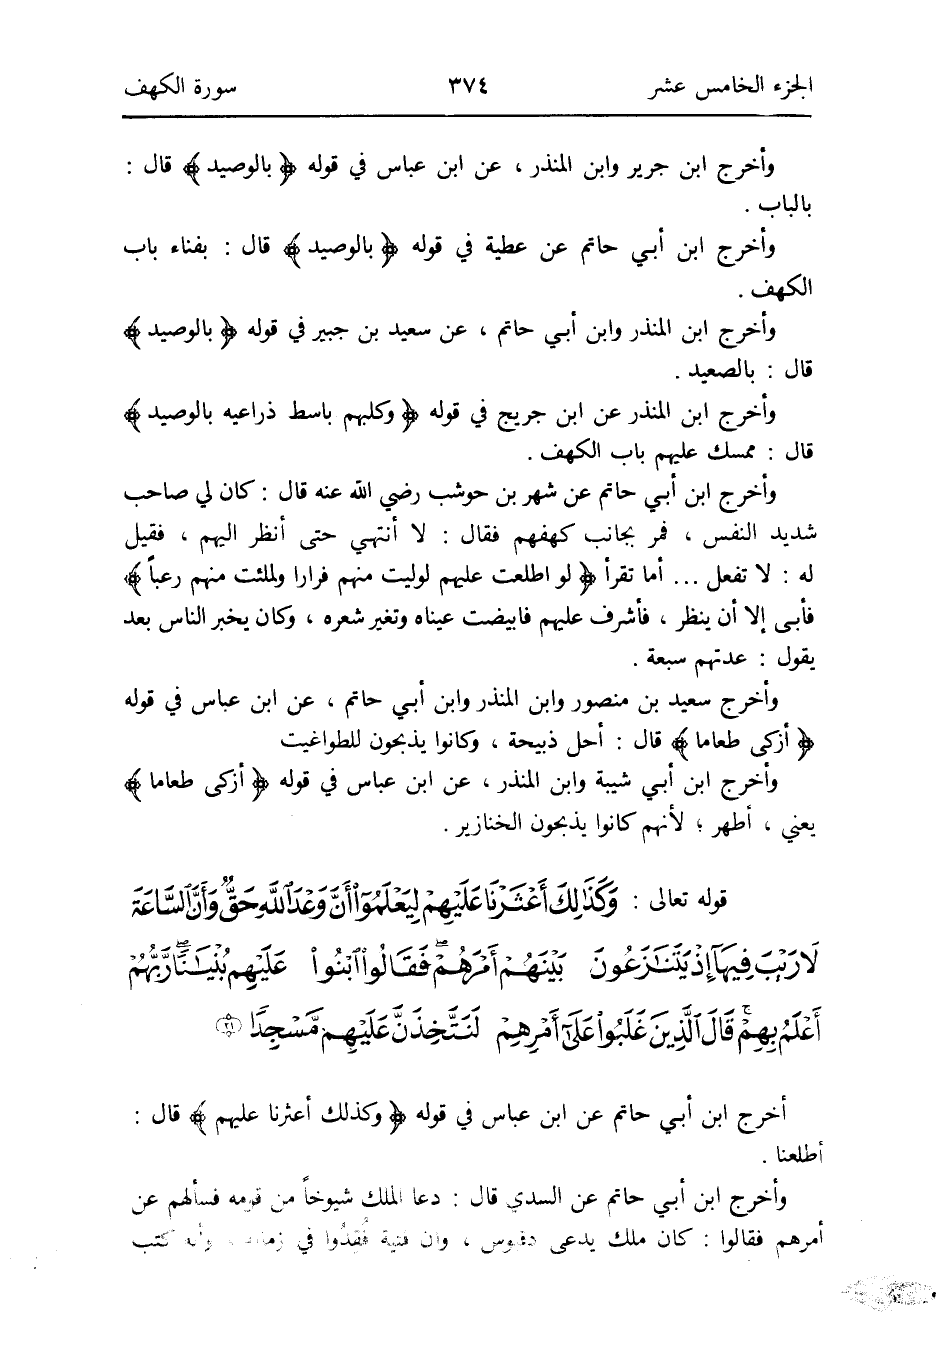 الجزء الخامس عشر ٣٧٤ سورة الكهف
وأخرج ابن جرير وابن المنذر ، عن ابن عباس في قوله ﴿ بالوصيد ﴾ قال :
بالباب .
وأخرج ابن أبي حاتم عن عطية في قوله ﴿ بالوصيد ﴾ قال : بفناء باب
الكهف .
وأخرج ابن المنذر وابن أبي حاتم ، عن سعيد بن جبير في قوله ﴿ بالوصيد ﴾
قال : بالصعيد .
وأخرج ابن المنذر عن ابن جريج في قوله ﴿ وكلبهم باسط ذراعيه بالوصيد ﴾
قال : ممسك عليهم باب الكهف .
وأخرج ابن أبي حاتم عن شهر بن حوشب رضي الله عنه قال : كان لي صاحب
شديد النفس ، فمر بجانب كهفهم فقال : لا أنتهي حتى أنظر اليهم ، فقيل
له : لا تفعل ... أما تقرأ ﴿ لو اطلعت عليهم لوليت منهم فرارا ولملئت منهم رعباً ﴾
فأبى إلا أن ينظر ، فأشرف عليهم فابيضت عيناه وتغير شعره ، وكان يخبر الناس بعد
يقول : عدتهم سبعة .
وأخرج سعيد بن منصور وابن المنذر وابن أبي حاتم ، عن ابن عباس في قوله
﴿ أزكى طعاما ﴾ قال : أحل ذبيحة ، وكانوا يذبحون للطواغيت
وأخرج ابن أبي شيبة وابن المنذر ، عن ابن عباس في قوله ﴿ أزكى طعاما ﴾
يعني ، أطهر ؛ لأنهم كانوا يذبحون الخنازير .
قوله تعالى : وَكَذَٰلِكَ أَعْثَرْنَا عَلَيْهِمْ لِيَعْلَمُوٓا۟ أَنَّ وَعْدَ ٱللَّهِ حَقٌّ وَأَنَّ ٱلسَّاعَةَ
لَا رَيْبَ فِيهَآ إِذْ يَتَنَٰزَعُونَ بَيْنَهُمْ أَمْرَهُمْ ۖ فَقَالُوا۟ ٱبْنُوا۟ عَلَيْهِم بُنْيَٰنًا ۖ رَّبُّهُمْ
أَعْلَمُ بِهِمْ ۚ قَالَ ٱلَّذِينَ غَلَبُوا۟ عَلَىٰٓ أَمْرِهِمْ لَنَتَّخِذَنَّ عَلَيْهِم مَّسْجِدًا ٢١
أخرج ابن أبي حاتم عن ابن عباس في قوله ﴿ وكذلك أعثرنا عليهم ﴾ قال :
أطلعنا .
وأخرج ابن أبي حاتم عن السدي قال : دعا الملك شيوخاً من قومه فسألهم عن
أمرهم فقالوا : كان ملك يدعى دقيوس ، وان فتية فُقِدُوا في زمانه ، وأنه كتب